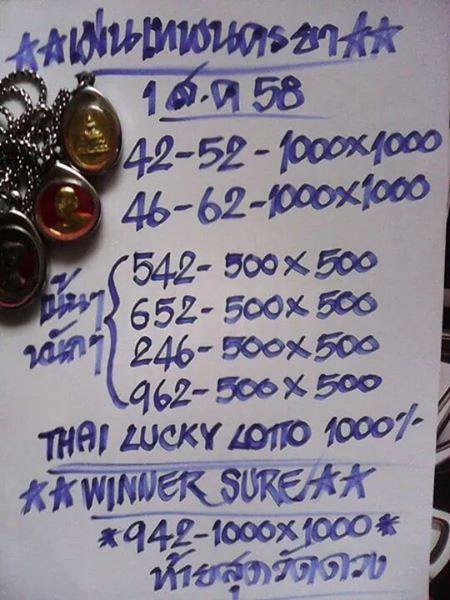 ★★แฟนเทพนครยา★★
1 ส.ค 58
42-52-1000×1000
46-62-1000×1000
เน้นๆ หนักๆ
542-500×500
652-500×500
246-500×500
962-500×500
THAI LUCKY LOTTO 1000%
★★WINNER SURE/★★
*942-1000×1000*
ท้ายสุดวัดดวง